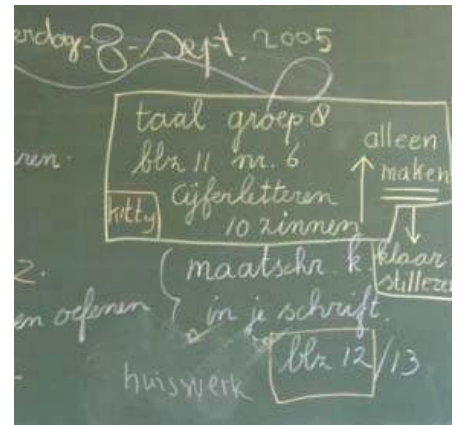 erdag-8-Sept. 2005
taal groep 8
blz 11 nr. 6
Cijferletteren
10 zinnen
kitty
alleen
maken
klaar
stillezen
ren.
2.
en oefenen
maatschr. k.
in je schrift.
huiswerk
blz 12/13